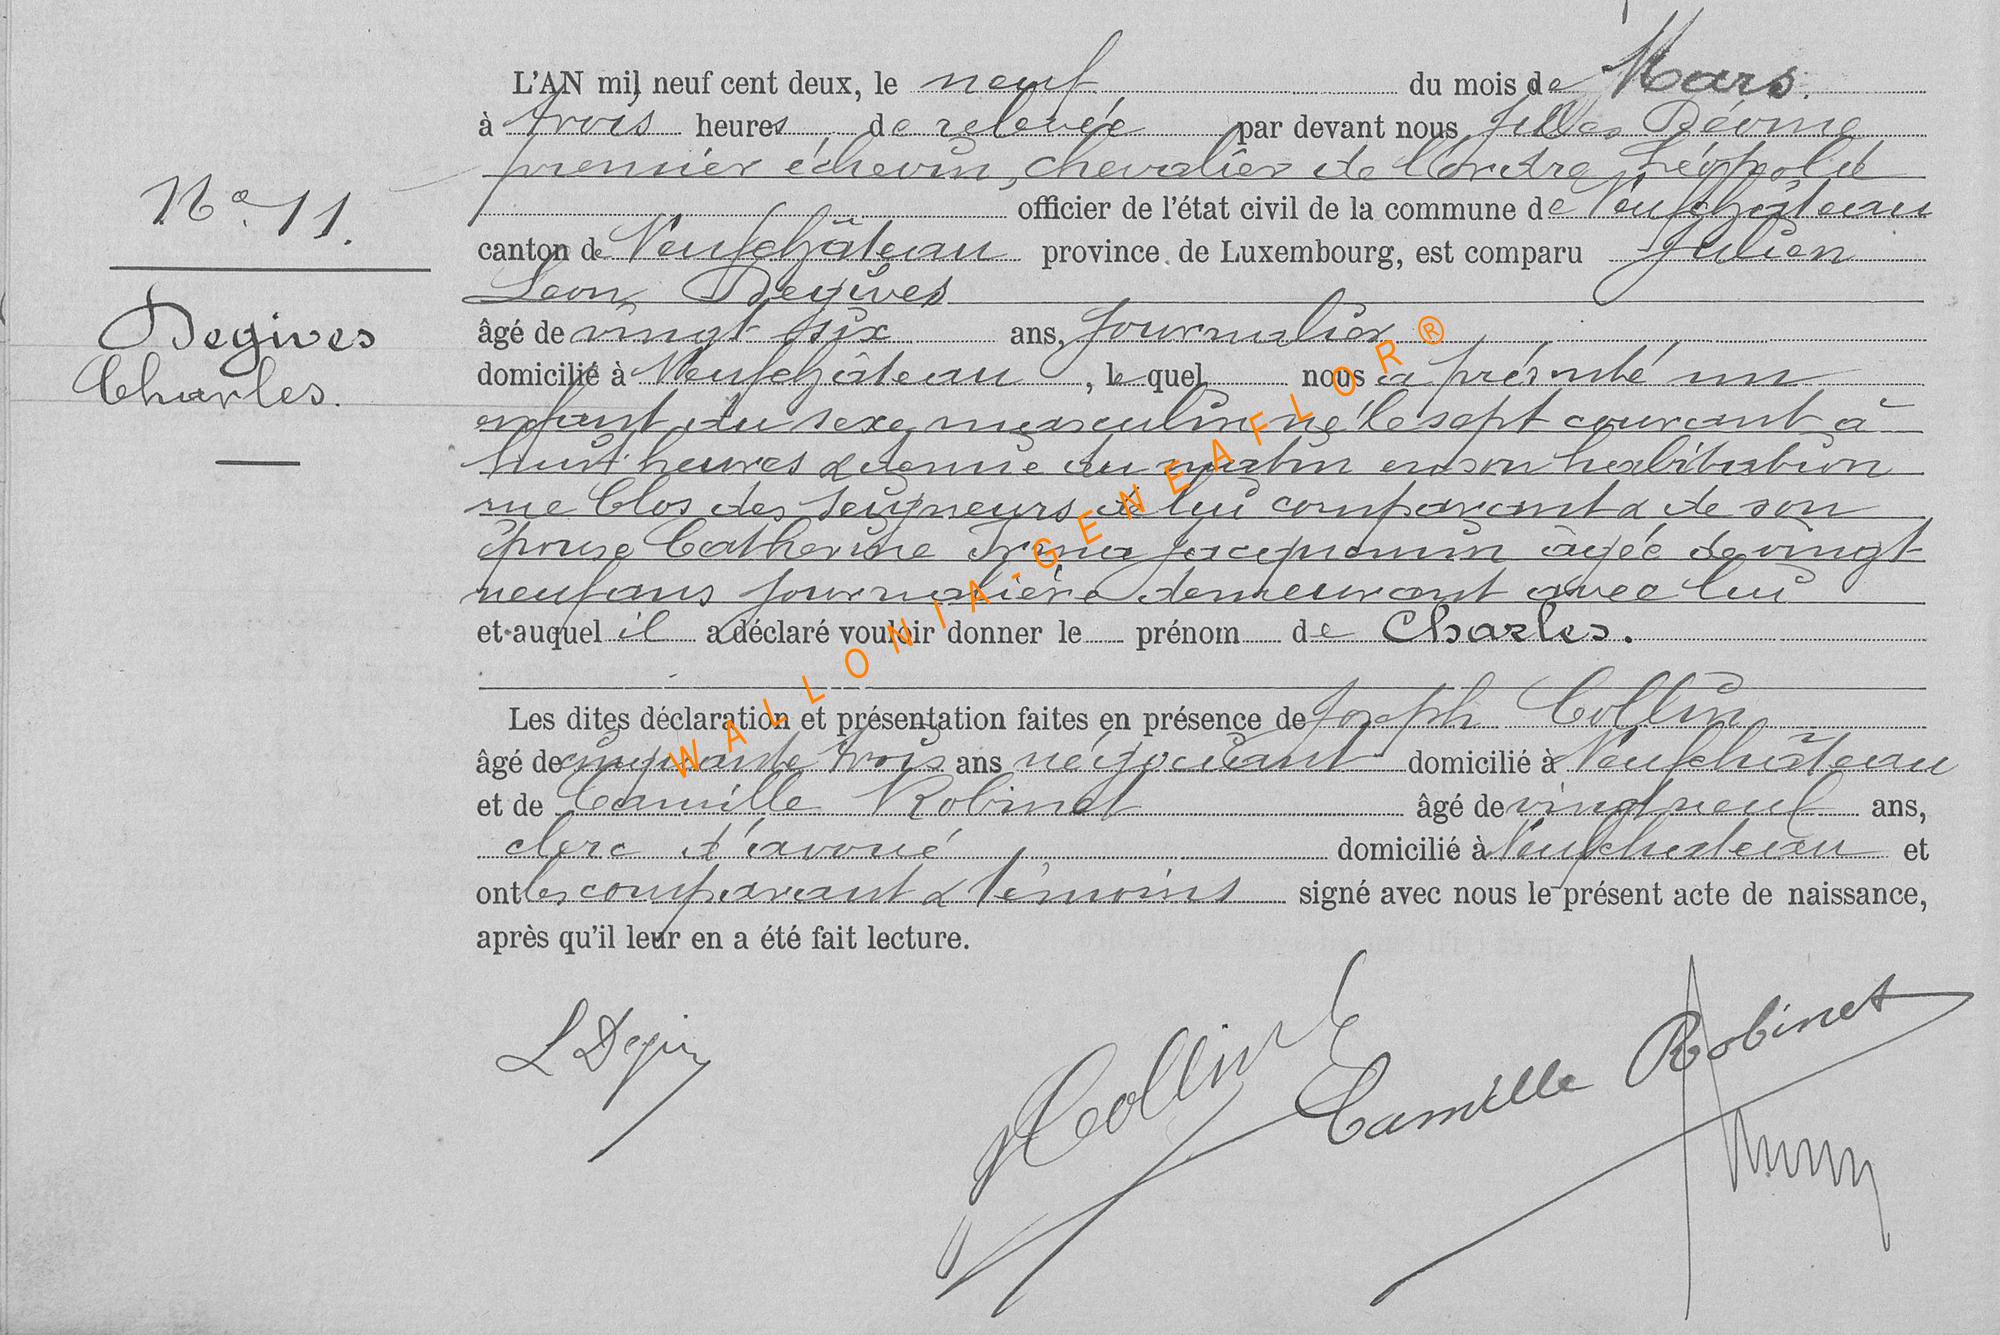 L'AN mil neuf cent deux, le neuf du mois de Mars.
à trois heures de relevée par devant nous Jules
premier échevin, chevalier de l'ordre Léopold
officier de l'état civil de la commune de Neufchâteau
canton de Neufchâteau province de Luxembourg, est comparu Julien
Léon Degives
âgé de vingt six ans, journalier
domicilié à Neufchâteau, lequel nous a présenté un
enfant du sexe masculin né le sept courant à
huit heures & demie du matin en son habitation
rue Clos des Seigneurs de lui comparant & de son
épouse Catherine Irma Jacquemin âgée de vingt
neuf ans journalière demeurant avec lui
et auquel il a déclaré vouloir donner le prénom de Charles.
Les dites déclaration et présentation faites en présence de Joseph Collin
âgé de cinquante trois ans négociant domicilié à Neufchâteau
et de Camille Robinet âgé de vingt neuf ans,
clerc d'avoué domicilié à Neufchateau et
ont les comparant & témoins signé avec nous le présent acte de naissance,
après qu'il leur en a été fait lecture.
No. 11.
Degives
Charles.
WALLONIA-GENEAFLOR®
L Degives
Collin
Camille Robinet